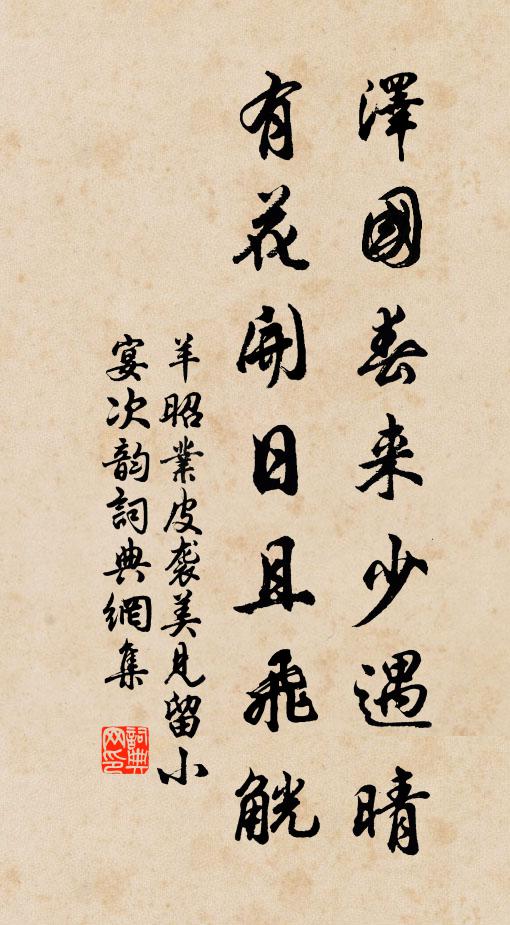 澤國春来少遇晴
有花開日且飛觥
羊昭業皮袭美見留小
宴次韵詞典網集
詞典网印